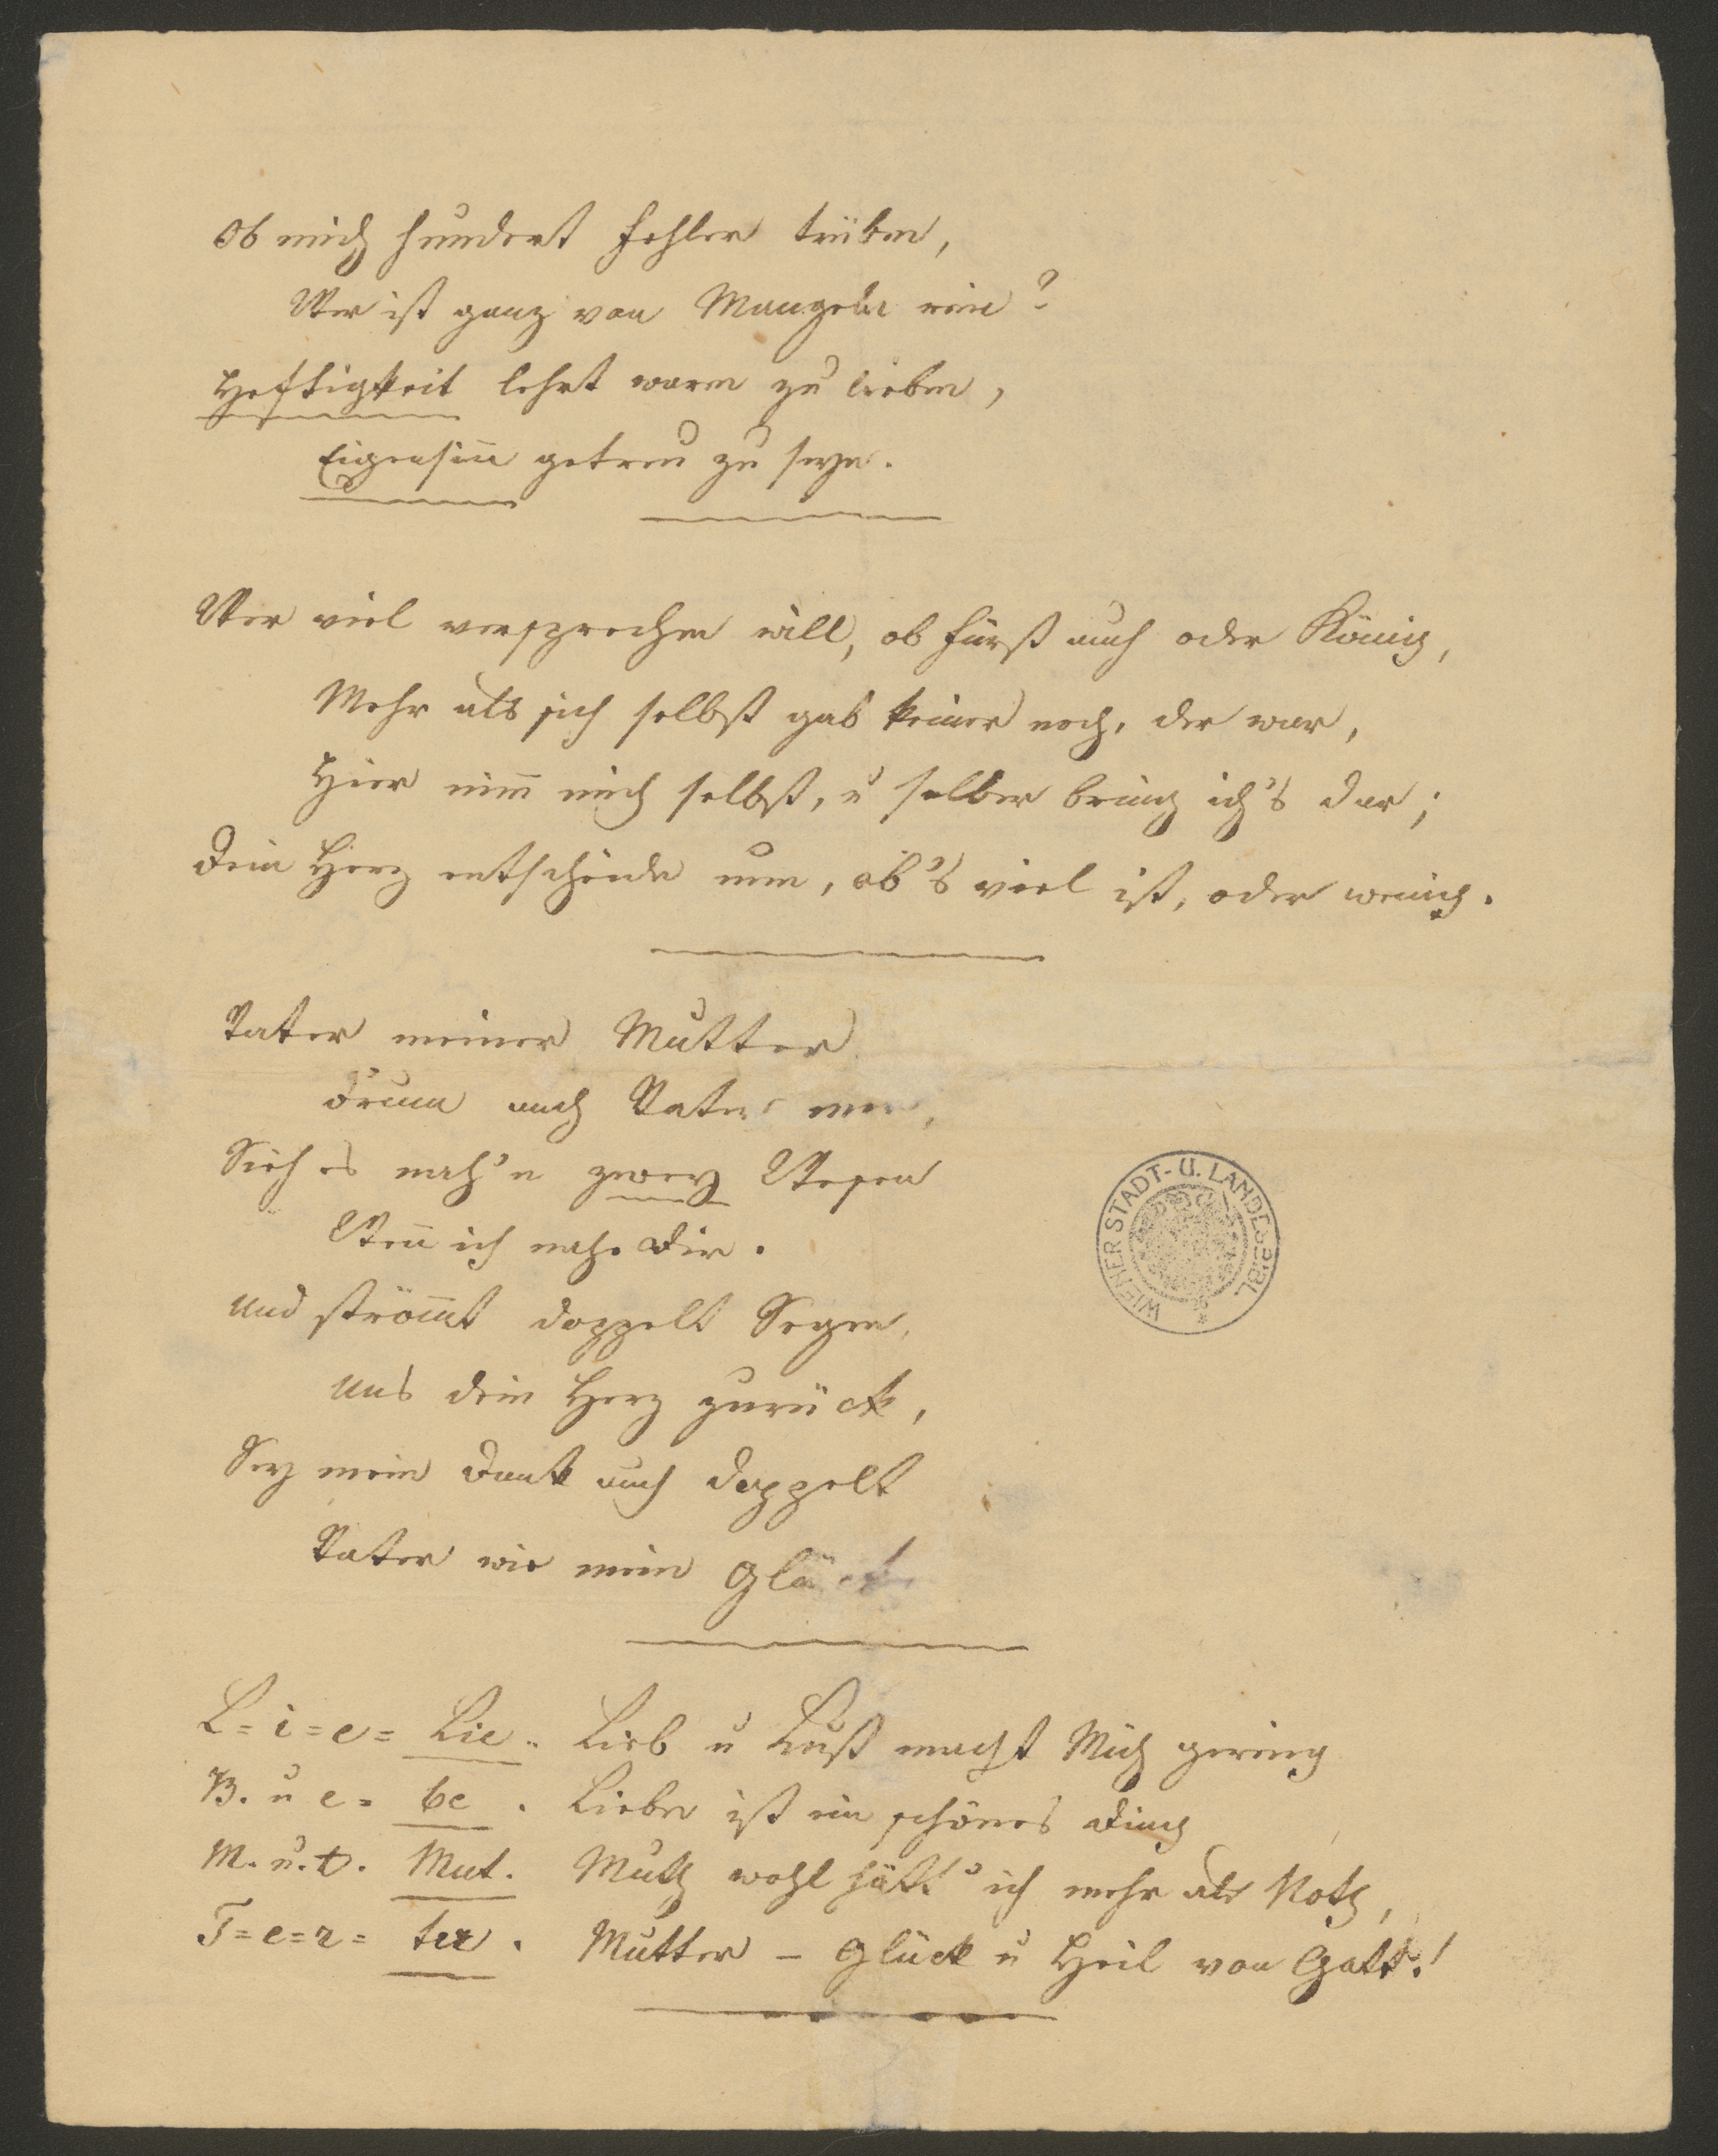 Ob mich hundert Fehler trüben,
Wer ist ganz von Mangeln rein?
Heftigkeit lehrt warm zu lieben,
Eigensin̄ getreu zu seyn.
Wer viel versprechen will, ob Fürst auch oder König,
Mehr als sich selbst gab keiner noch, der war,
Hier nim̄ mich selbst, u selber bring ich's dar;
Dein Herz entscheide nun, ob's viel ist, oder wenig.
Vater meiner Mutter
Drum auch Vater mir,
Sieh es nah'n zwey Wesen
Wen̄ ich nahe Dir.
Und ström̄t doppelt Segen,
Uns dein Herz zurück,
Sey mein Dank auch doppelt
Vater wie mein Glück
L=i=e= Lie. Lieb u Lust macht Mich gering
B. u e= be. Liebe ist ein schönes Ding
M. u. t. Mut. Muth wohl hätt' ich mehr als Noth,
T=e=r= ter. Mutter – Glück u Heil von Gott!
WIENER STADT- U. LANDESBIBL.